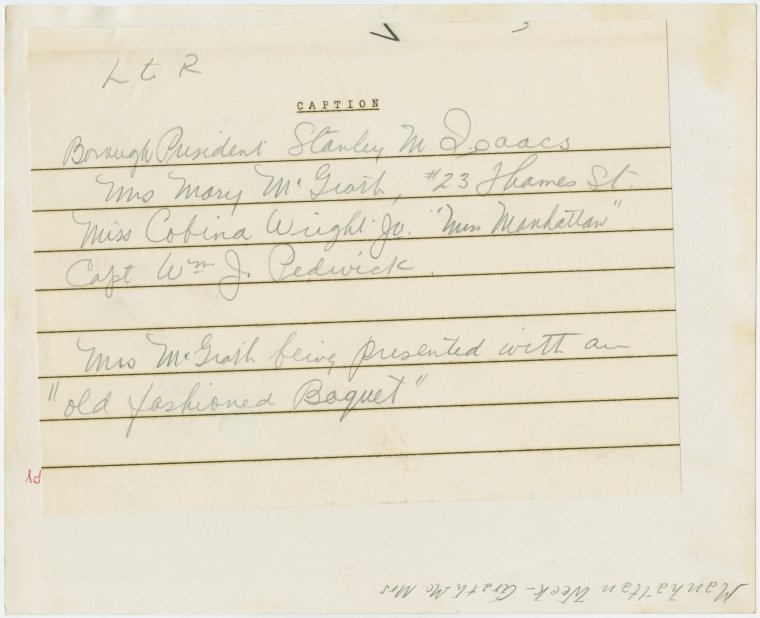 L t R
CAPTION
Borough President Stanley M Isaacs
Mrs Mary McGrath, #23 Thames St.
Miss Cobina Wright Jr. "Miss Manhattan"
Capt Wm J. Pedrick.
Mrs McGrath being presented with an
"old fashioned Boquet"
PY
Manhattan Week - Grath, Mc. Mrs